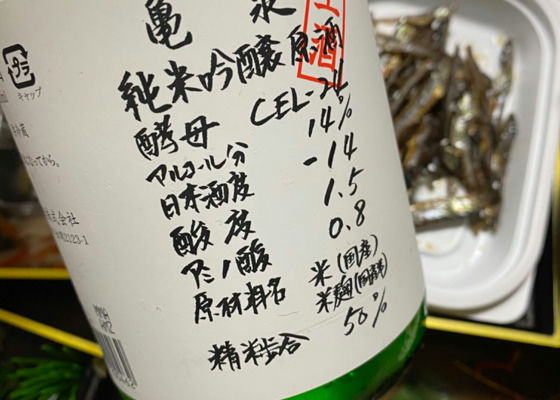 亀泉
生酒
純米吟醸原酒
酵母 CEL-24
アルコール分 14%
日本酒度 -14
酸度 1.5
アミノ酸 0.8
原材料名 米(国産)
米麹(国産米)
精米歩合 50%
プラ
キャップ
なってから。
株式会社
2123-1